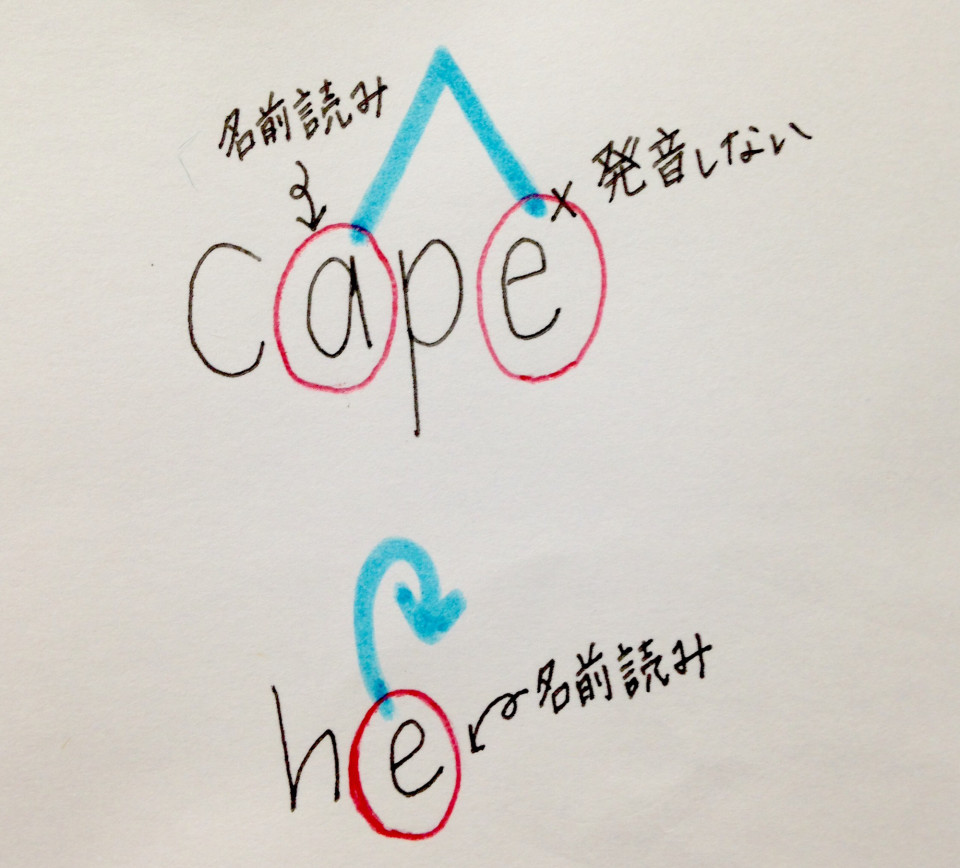 名前読み
× 発音しない
cape
he
名前読み